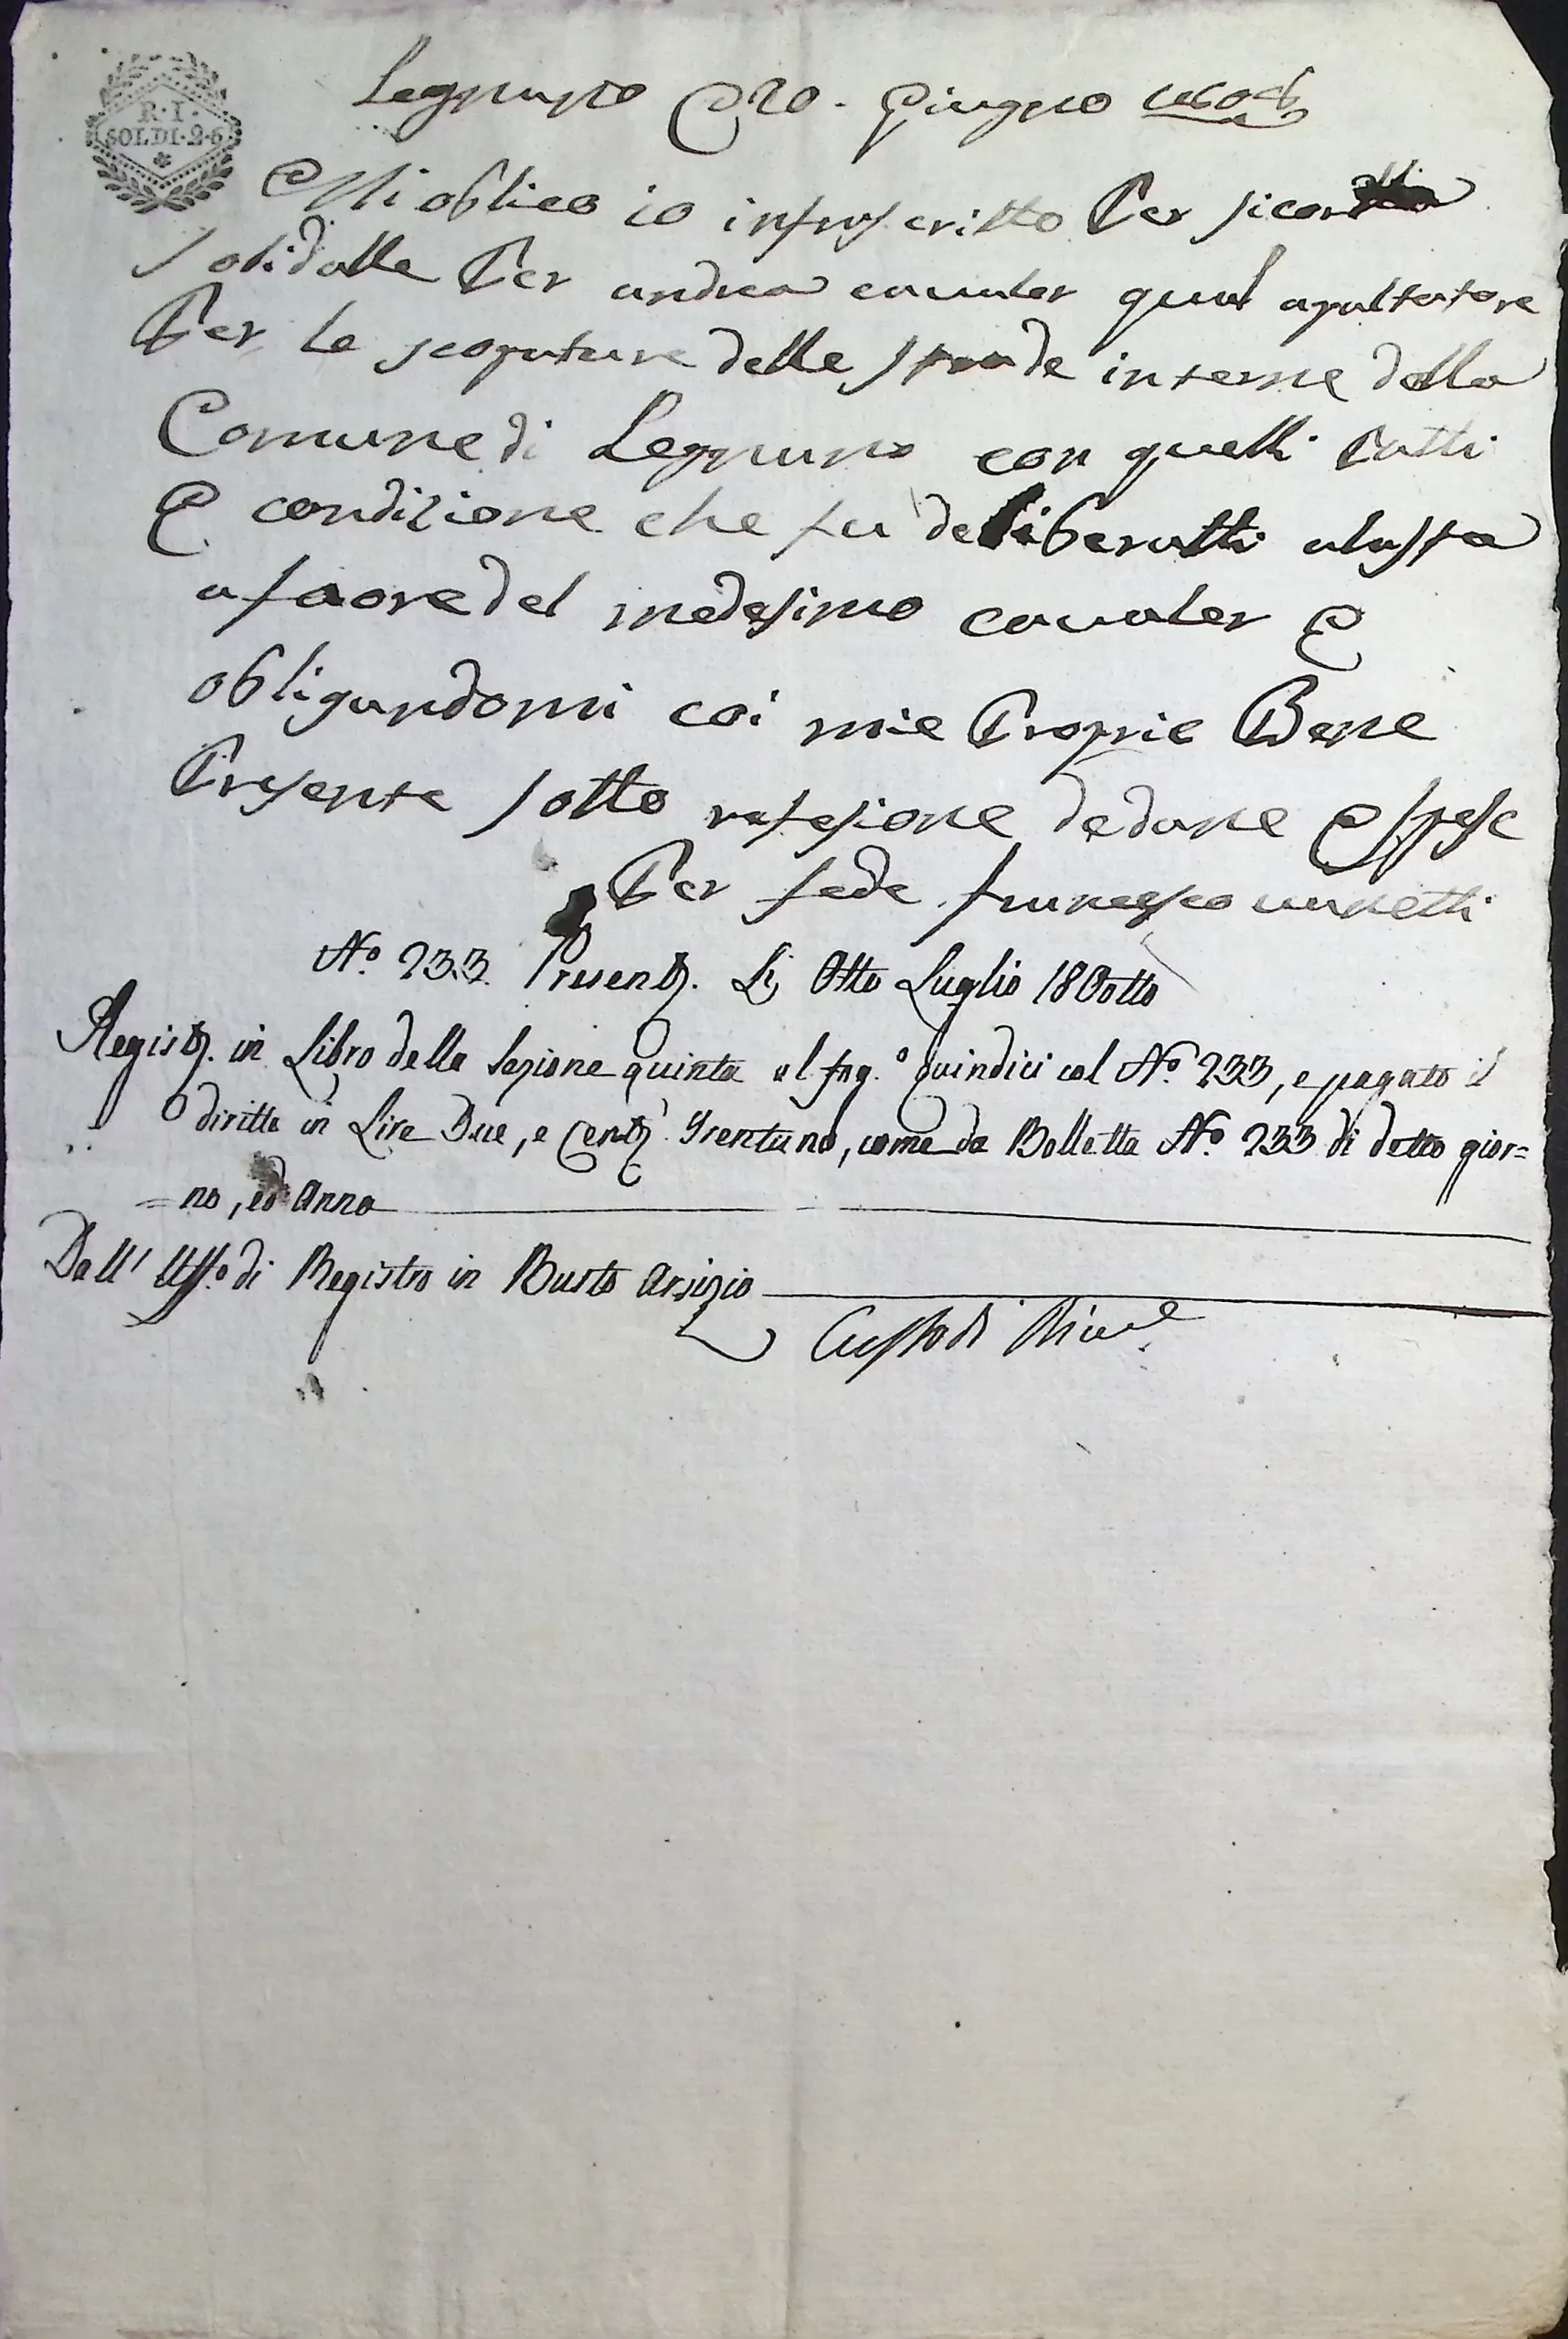 R. I.
SOLDI. 2. 6
Leggnano 20. Giugno 1808
Mi oblico io infrascritto Per sicortà
solidalle Per andrea cavaler qual apaltatore
Per le scopature delle strade interne della
Comune di Leggnano con quelli Patti
E condizione che fu deliberatti alasta
afavore del medesimo cavaler E
obligandomi coi mie Proprie Bene
Presente sotto refesione de dane E spese
Per fede francesco
N.º 233. Present. Li Otto Luglio 180otto
Regist. in Libro della Sezione quinta al fog.º quindici col N.º 233, e pagato il
diritto in Lire Due, e Cent. Trentuno, come da Bolletta N.º 233 di detto gior=
=no, ed Anno
Dall' Uff.º di Registro in Busto Arsizio
Custodi